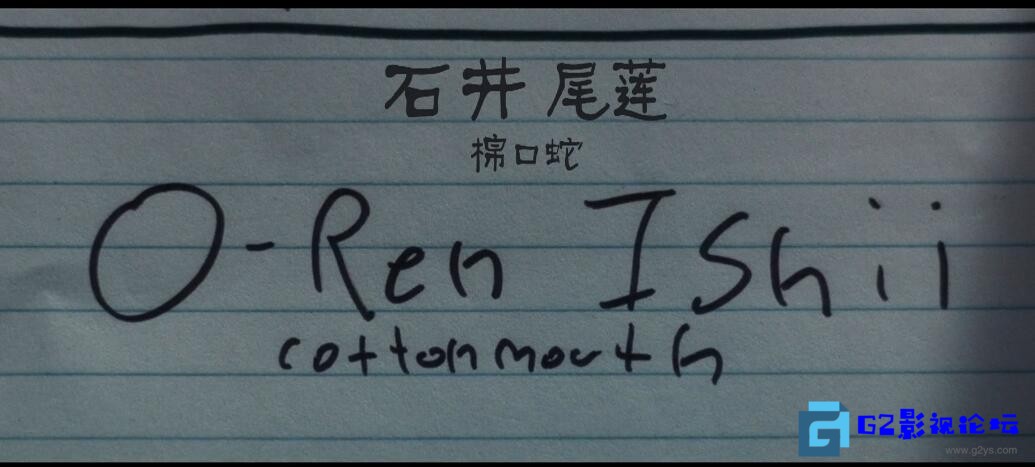 石井 尾莲
棉口蛇
O-Ren Ishii
cottonmouth
G2影视论坛
www.g2ys.com